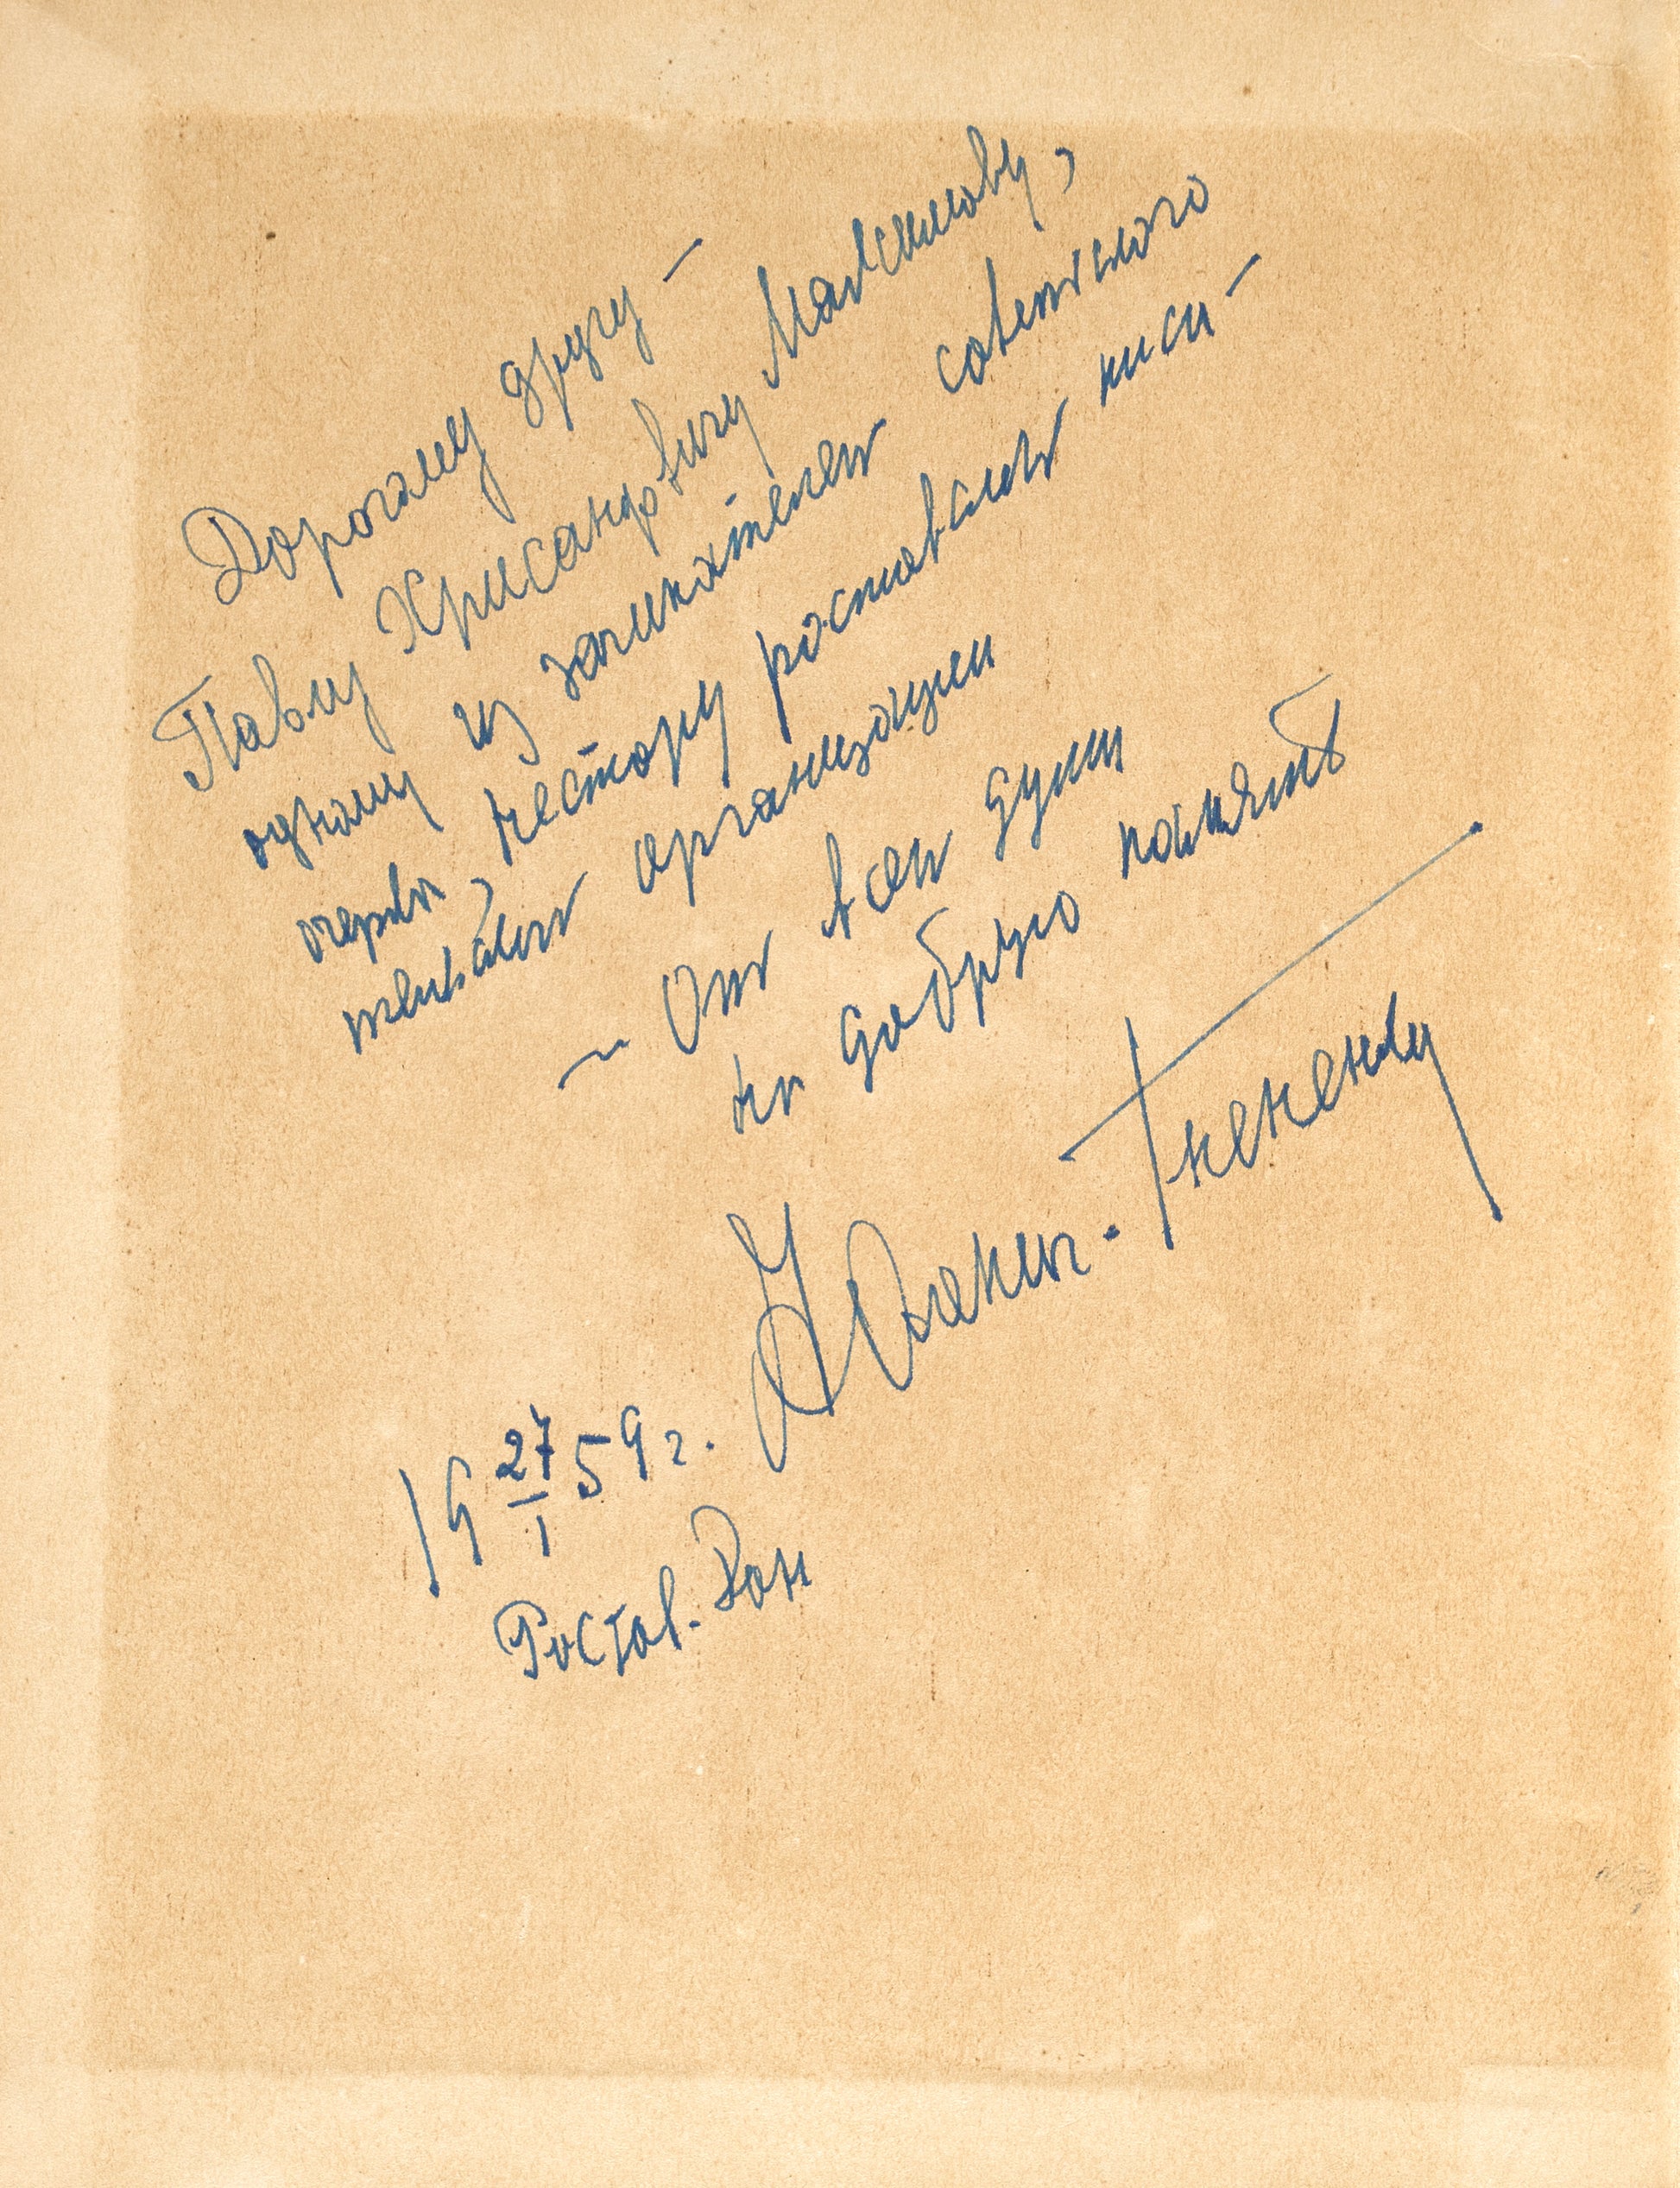 Дорогому другу —
Павлу Хрисандовичу Максимову,
одному из зачинателей советского
очерка, Нестору ростовской писа-
тельской организации
~ От всей души
на добрую память
Оленич-Гнененко
19 27/I 59 г.
Ростов-Дон